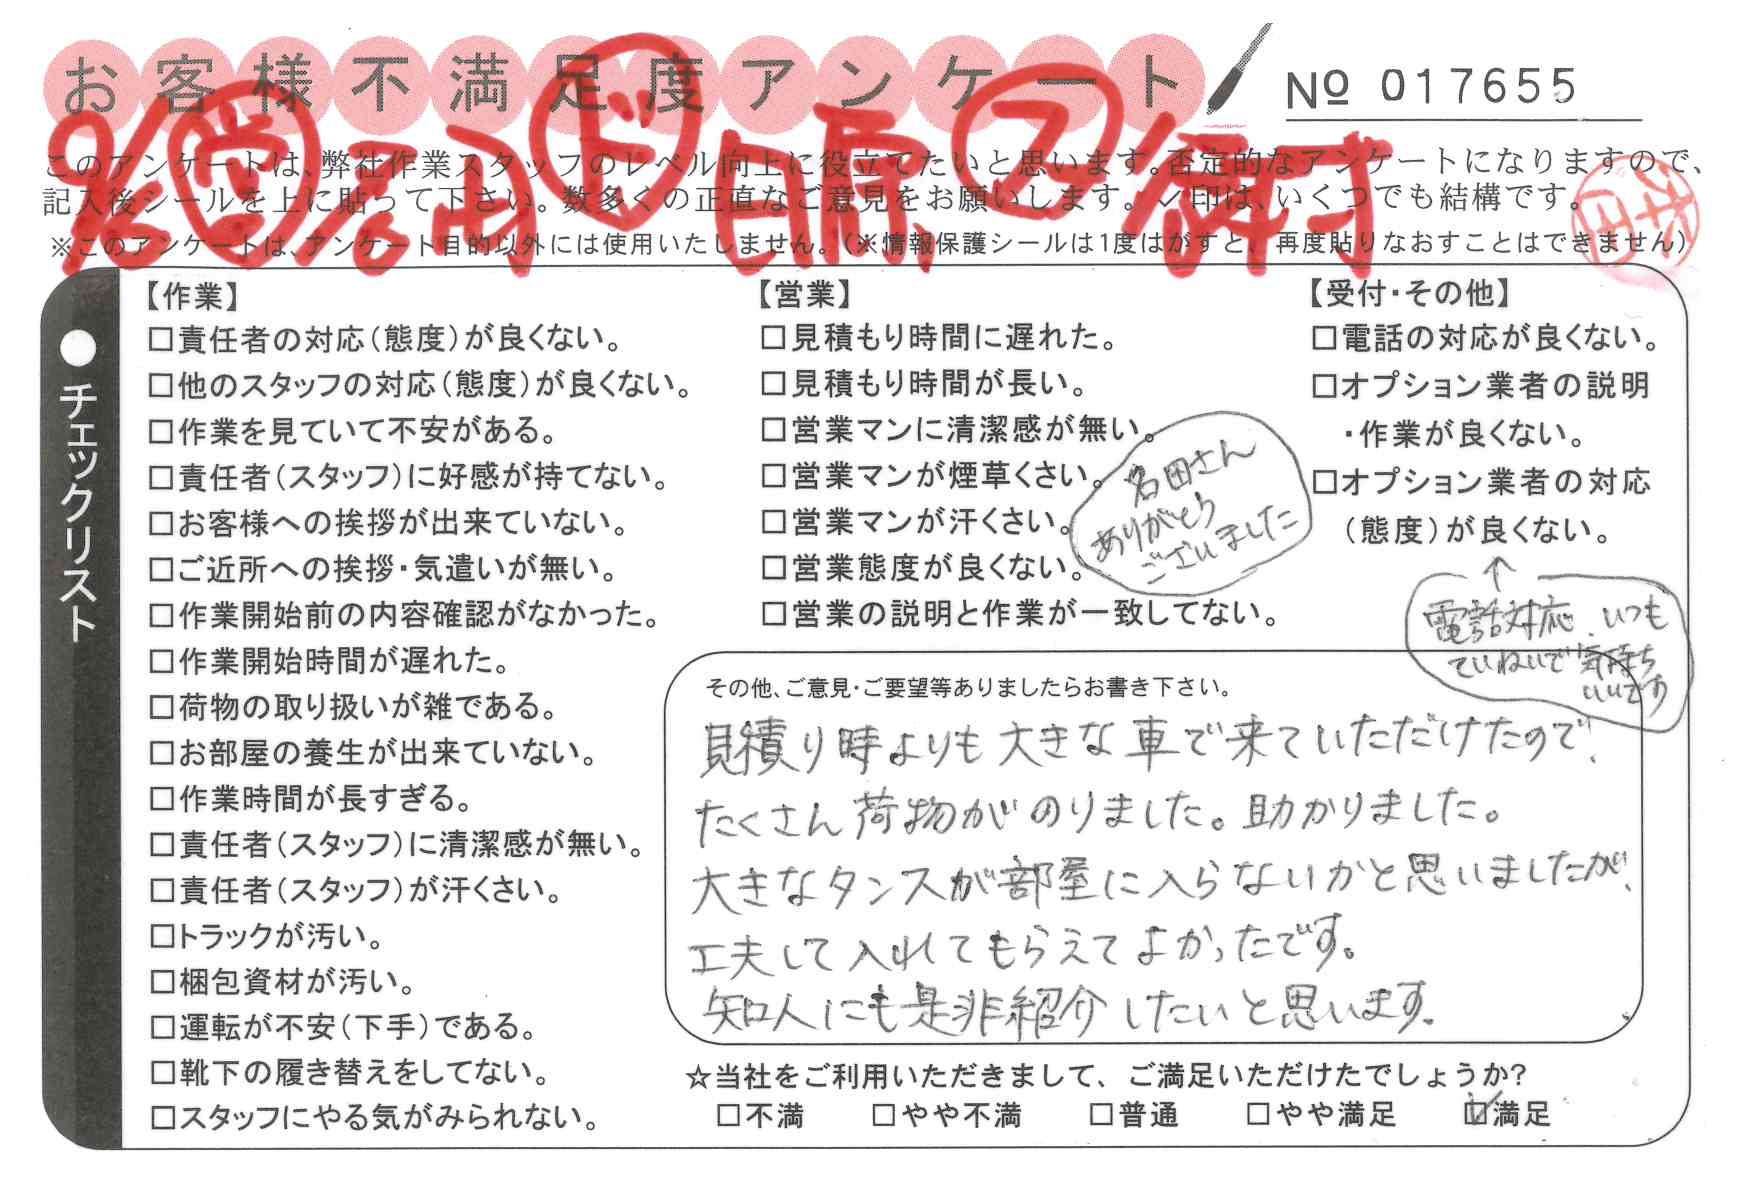 お客様不満足度アンケート
№ 017655
このアンケートは、弊社作業スタッフのレベル向上に役立てたいと思います。否定的なアンケートになりますので、
記入後シールを上に貼って下さい。数多くの正直なご意見をお願いします。✓印は、いくつでも結構です。
※このアンケートは、アンケート目的以外には使用いたしません。(※情報保護シールは1度はがすと、再度貼りなおすことはできません)
営
ド
●チェックリスト
【作業】
□責任者の対応(態度)が良くない。
□他のスタッフの対応(態度)が良くない。
□作業を見ていて不安がある。
□責任者(スタッフ)に好感が持てない。
□お客様への挨拶が出来ていない。
□ご近所への挨拶・気遣いが無い。
□作業開始前の内容確認がなかった。
□作業開始時間が遅れた。
□荷物の取り扱いが雑である。
□お部屋の養生が出来ていない。
□作業時間が長すぎる。
□責任者(スタッフ)に清潔感が無い。
□責任者(スタッフ)が汗くさい。
□トラックが汚い。
□梱包資材が汚い。
□運転が不安(下手)である。
□靴下の履き替えをしてない。
□スタッフにやる気がみられない。
【営業】
□見積もり時間に遅れた。
□見積もり時間が長い。
□営業マンに清潔感が無い。
□営業マンが煙草くさい。
□営業マンが汗くさい。
□営業態度が良くない。
□営業の説明と作業が一致してない。
名田さん
ありがとう
ございました
【受付・その他】
□電話の対応が良くない。
□オプション業者の説明
・作業が良くない。
□オプション業者の対応
(態度)が良くない。
↑
電話対応、いつも
ていねいで気持ち
いいです
その他、ご意見・ご要望等ありましたらお書き下さい。
見積り時よりも大きな車で来ていただけたので、
たくさん荷物がのりました。助かりました。
大きなタンスが部屋に入らないかと思いましたが、
工夫して入れてもらえてよかったです。
知人にも是非紹介したいと思います。
☆当社をご利用いただきまして、ご満足いただけたでしょうか?
□不満 □やや不満 □普通 □やや満足 ☑満足